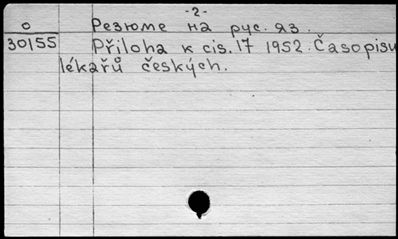 -2-
О Резюме на рус. яз.
30155 Příloha k cis. 17 1952. Časopisu
lékařů českých.